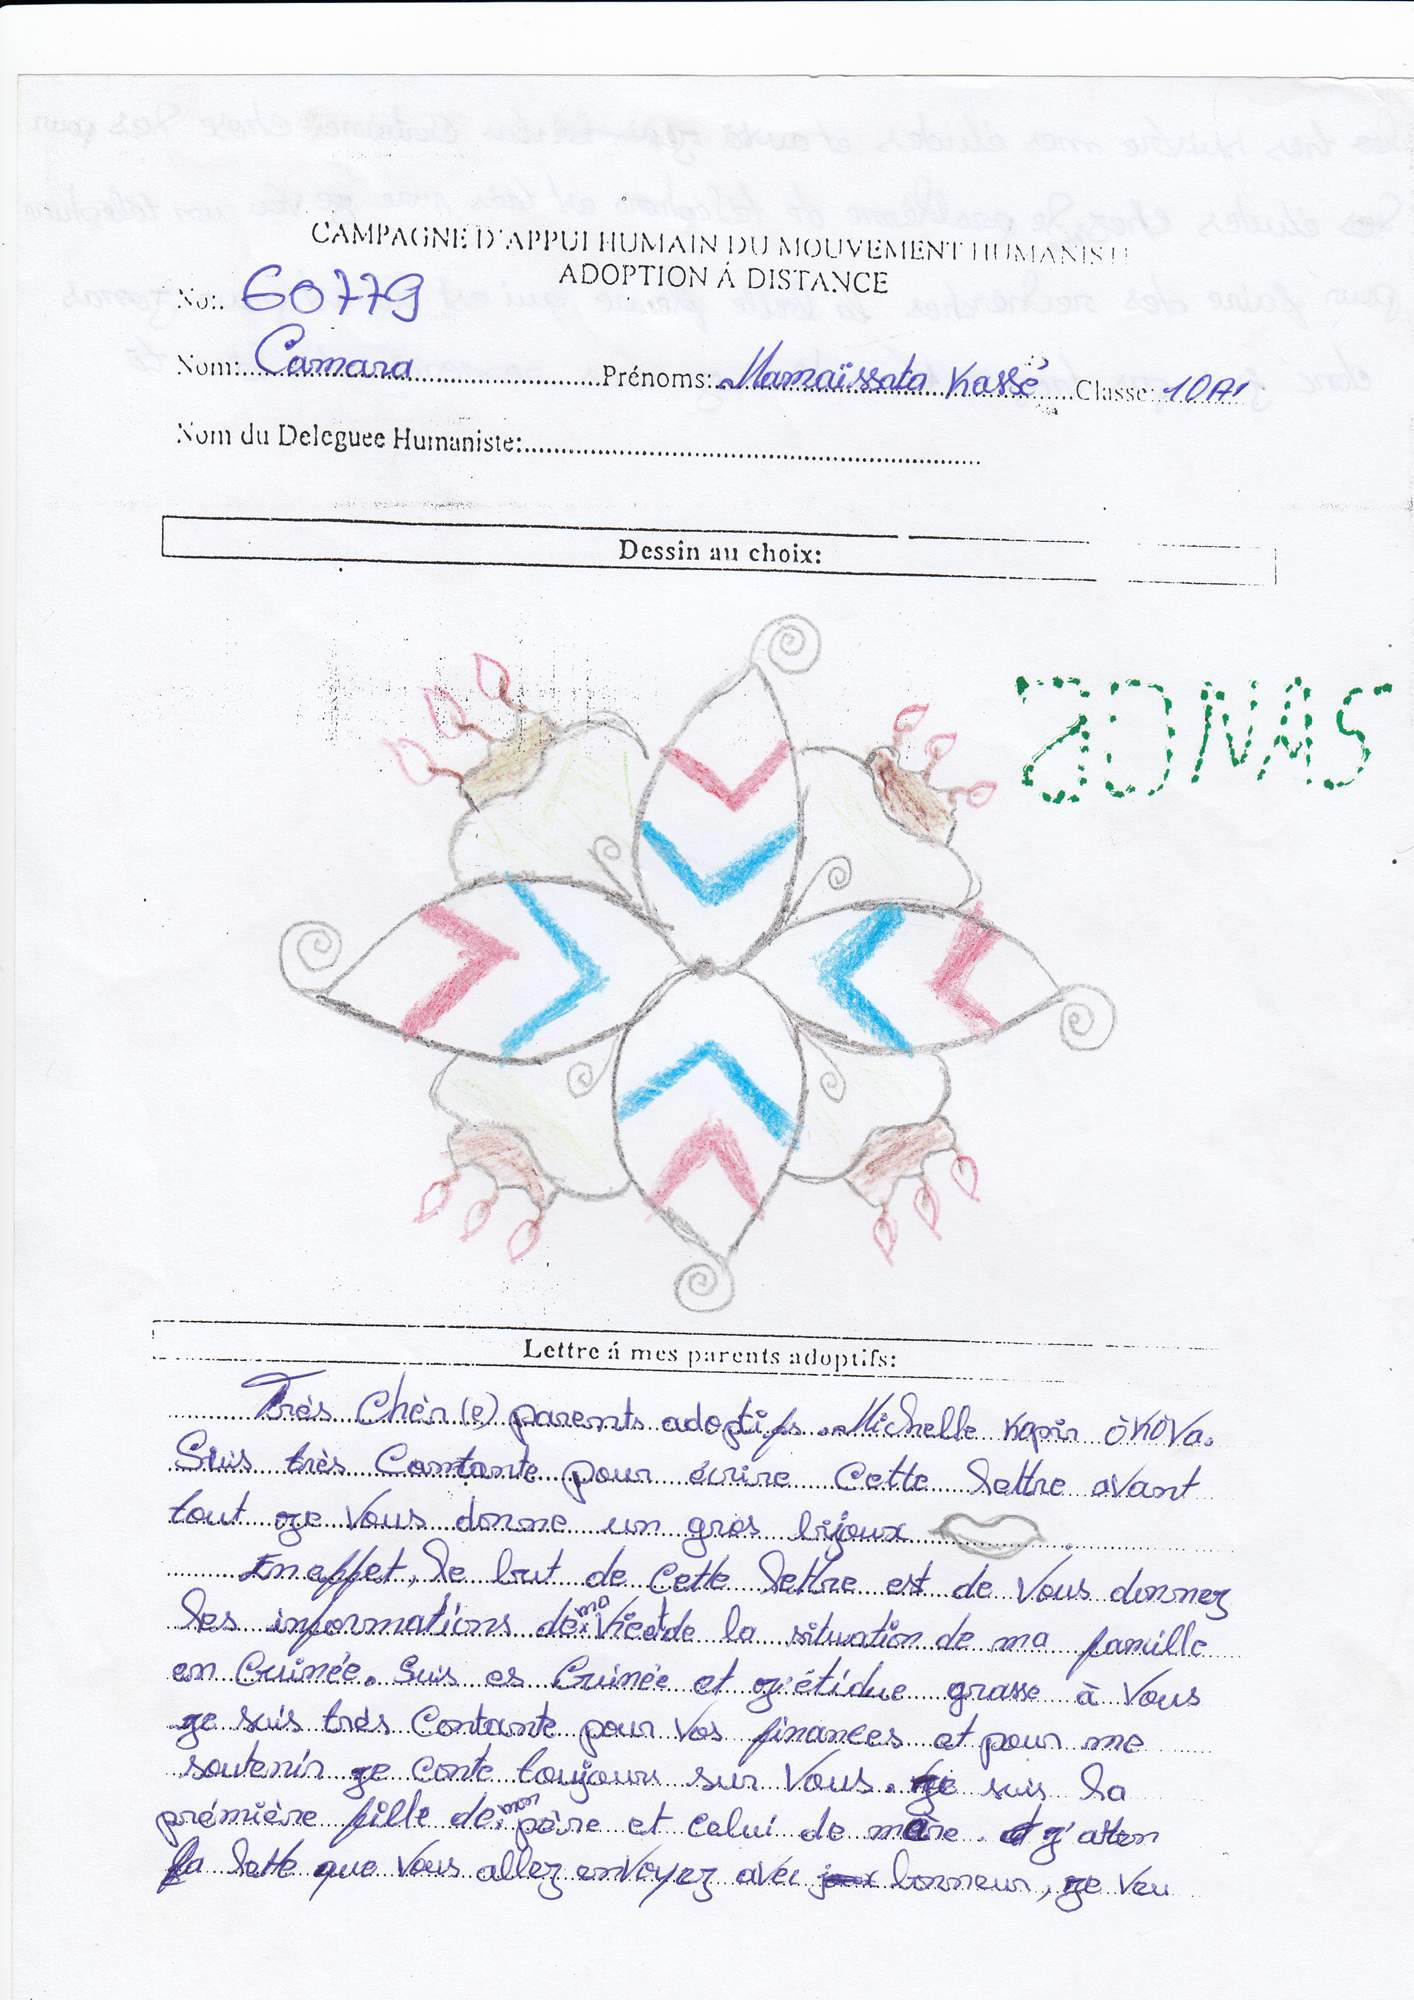 CAMPAGNE D'APPUI HUMAIN DU MOUVEMENT HUMANISTE
ADOPTION Á DISTANCE
No: 60779
Nom: Camara Prénoms: Mamaïssata Kassé Classe: 10A1
Nom du Deleguee Humaniste:
Dessin au choix:
ADNAS
Lettre á mes parents adoptifs:
Très Chèr(e) parents adoptifs. Michelle
Suis très Contante pour écrire Cette lettre avant
tout je Vous donne un gros bijoux
En effet, le but de Cette lettre est de Vous donnez
les informations de ma Vie et de la situation de ma famille
en Guinée. Suis es Guinée et j'étidue grasse à Vous
je suis très Contante pour vos finances et pour me
soutenir je Conte toujours sur Vous. je suis la
prémière fille de mon père et celui de mère. et j'atten
la lette que Vous allez envoyez avec bonneur, je Veu